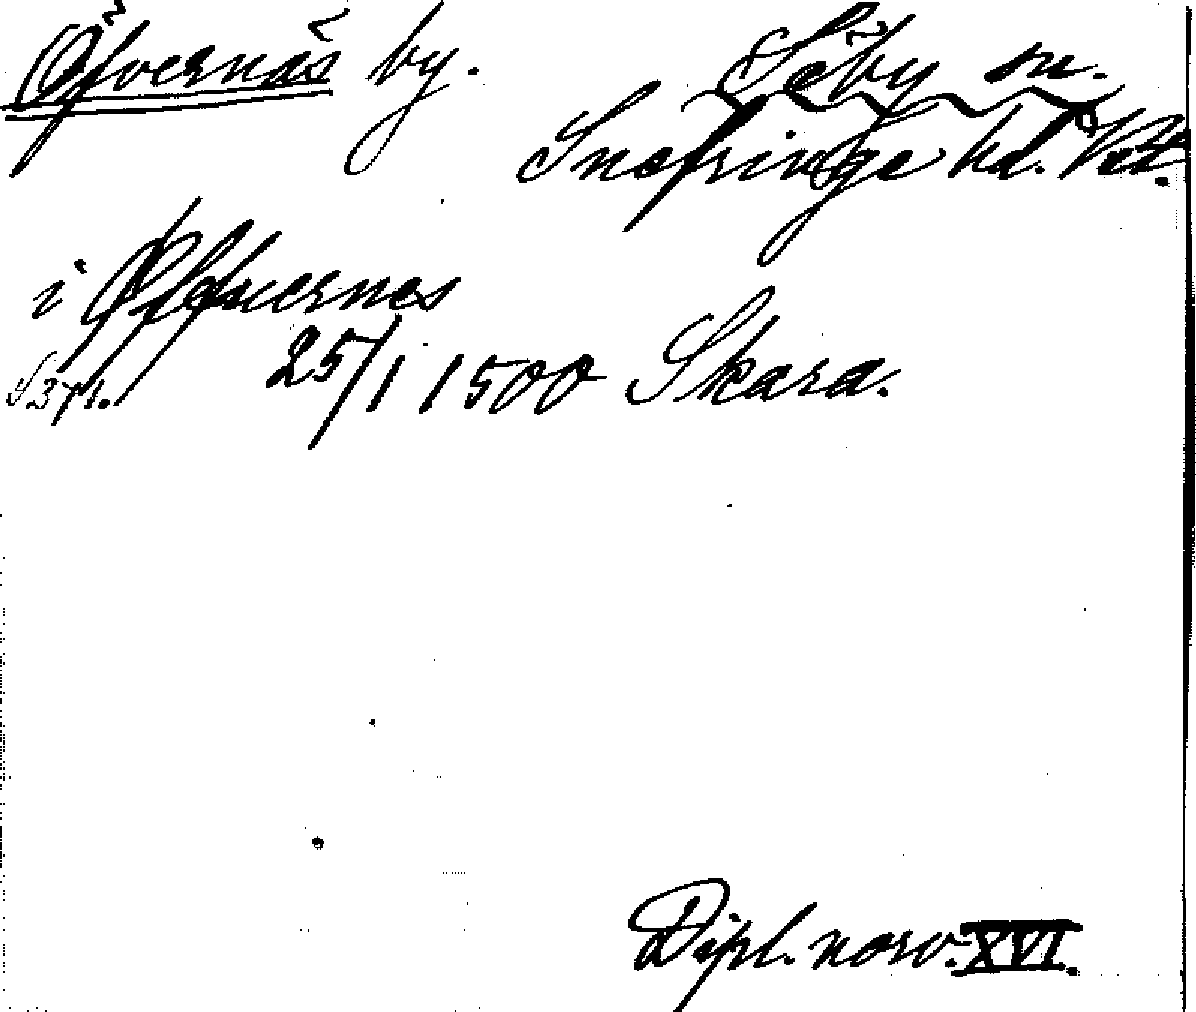 Öfvernäs by. Säby sn.
Snefringe hd. Vstl.
i Øffuernes
S. 371. 25/1 1500 Skara.
Dipl. norv. XVI.